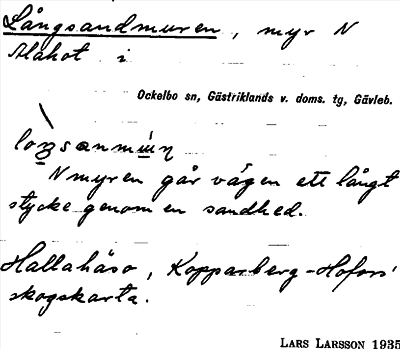 Långsandmuren, myr N
Måhot i
Ockelbo sn, Gästriklands v. doms. tg, Gävleb.
N myren går vägen ett långt
stycke genom en sandhed.
Hallahåso, Kopparberg-Hofors'
skogskarta.
LARS LARSSON 1935